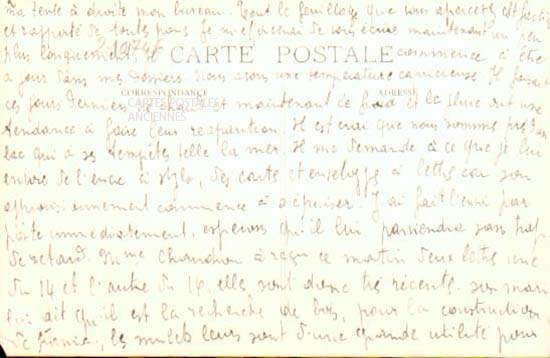 ma tente à droite mon bureau. Tout le feuillage que vous apercevez est
et rapporté de toutes parts Je m'efforcerai de vous écrire maintenant un peu
plus longuement, je commence à être
CARTE POSTALE
à jour dans mes dossiers. Nous avons une température Il faisait
CORRESPONDANCE
ADRESSE
CARTES POSTALES
ANCIENNES
ces jours derniers et maintenant le froid et la pluie ont une
tendance à faire leur réapparition. Il est vrai que nous sommes près
lac qui a ses tempêtes telle la mer Il me demande à ce que je lui
envoie de l'encre à stylo, des cartes et enveloppes à lettres car son
approvisionnement commence à s'épuiser. J'ai fait l'envoi par
poste immédiatement. espérons qu'il lui parviendra sans trop
de retard. Mme a reçu ce matin deux lettres une
du 14 et l'autre du elles sont donc très récentes. son mari
lui dit qu'il est à la recherche de bois, pour la construction
les mulets leurs sont d'une grande utilité pour